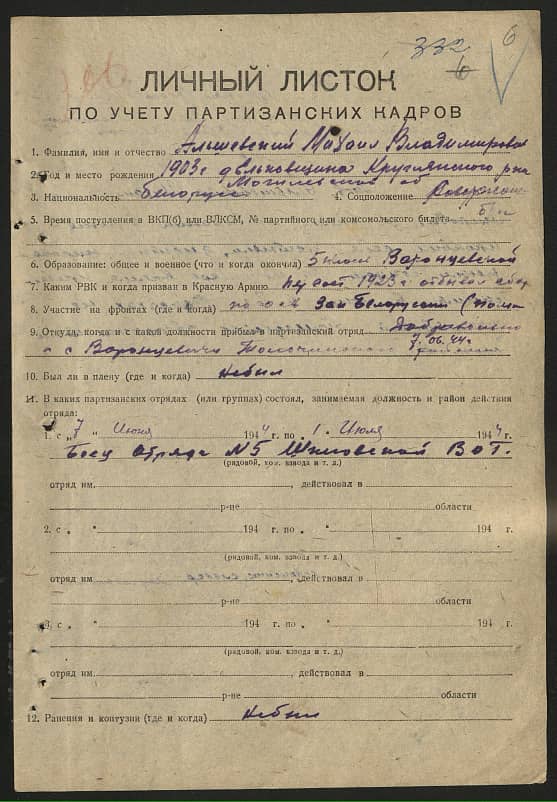 332
6
6
ЛИЧНЫЙ ЛИСТОК
ПО УЧЕТУ ПАРТИЗАНСКИХ КАДРОВ
1. Фамилия, имя и отчество Альшевский Михаил Владимирович
2. Год и место рождения 1903 г Круглянского р-на
3. Национальность белорус Могилевской об 4. Соцположение
5. Время поступления в ВКП(б) или ВЛКСМ, № партийного или комсомольского билета б/п
6. Образование: общее и военное (что и когда окончил) 5 класс Воронцевской
7. Каким РВК и когда призван в Красную Армию 1923 г
8. Участие на фронтах (где и когда)
9. Откуда, когда и с какой должности прибыл в партизанский отряд Добравольно
с Воронцевичи Толочинского района 7.06.44 г
10. Был ли в плену (где и когда) не был
11. В каких партизанских отрядах (или группах) состоял, занимаемая должность и район действия
отряда:
1. с „7 " Июня 1944 г. по 1 . Июля 1944 г.
Боец отряда N5 Шкловской В О Г.
(рядовой, ком. взвода и т. д.)
отряд им. , действовал в
р-не области
2. с „ " 194 г. по „ " 194 г.
(рядовой, ком. взвода и т. д.)
отряд им. , действовал в
р-не области
3. с „ " 194 г. по „ " 194 г.
(рядовой, ком. взвода и т. д.)
отряд им. , действовал в
р-не области
12. Ранения и контузии (где и когда) не был